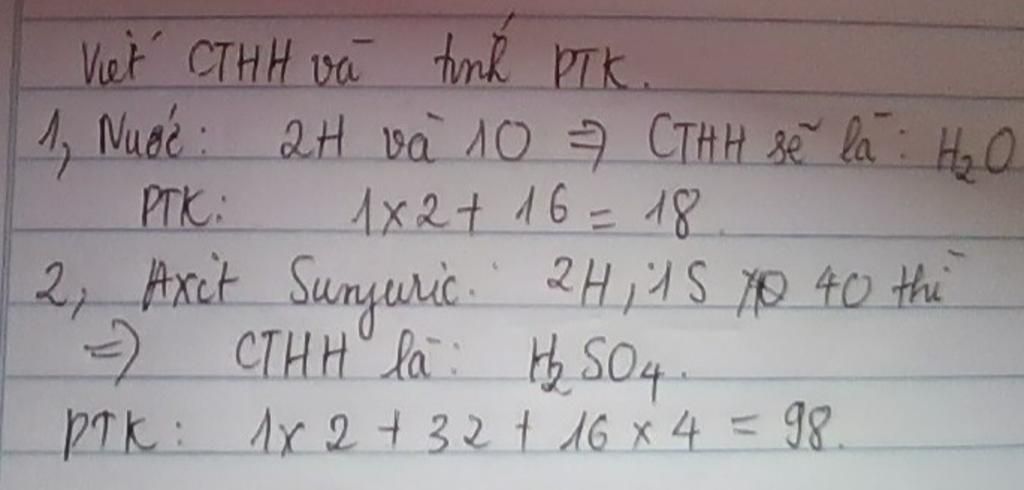 Viết CTHH và tính PTK.
1, Nước: 2H và 1O => CTHH sẽ là: H₂O
PTK: 1x2 + 16 = 18
2, Axit Sunfuric: 2H, 1S 4O thì
=> CTHH là: H₂SO₄.
PTK: 1x2 + 32 + 16 x 4 = 98.